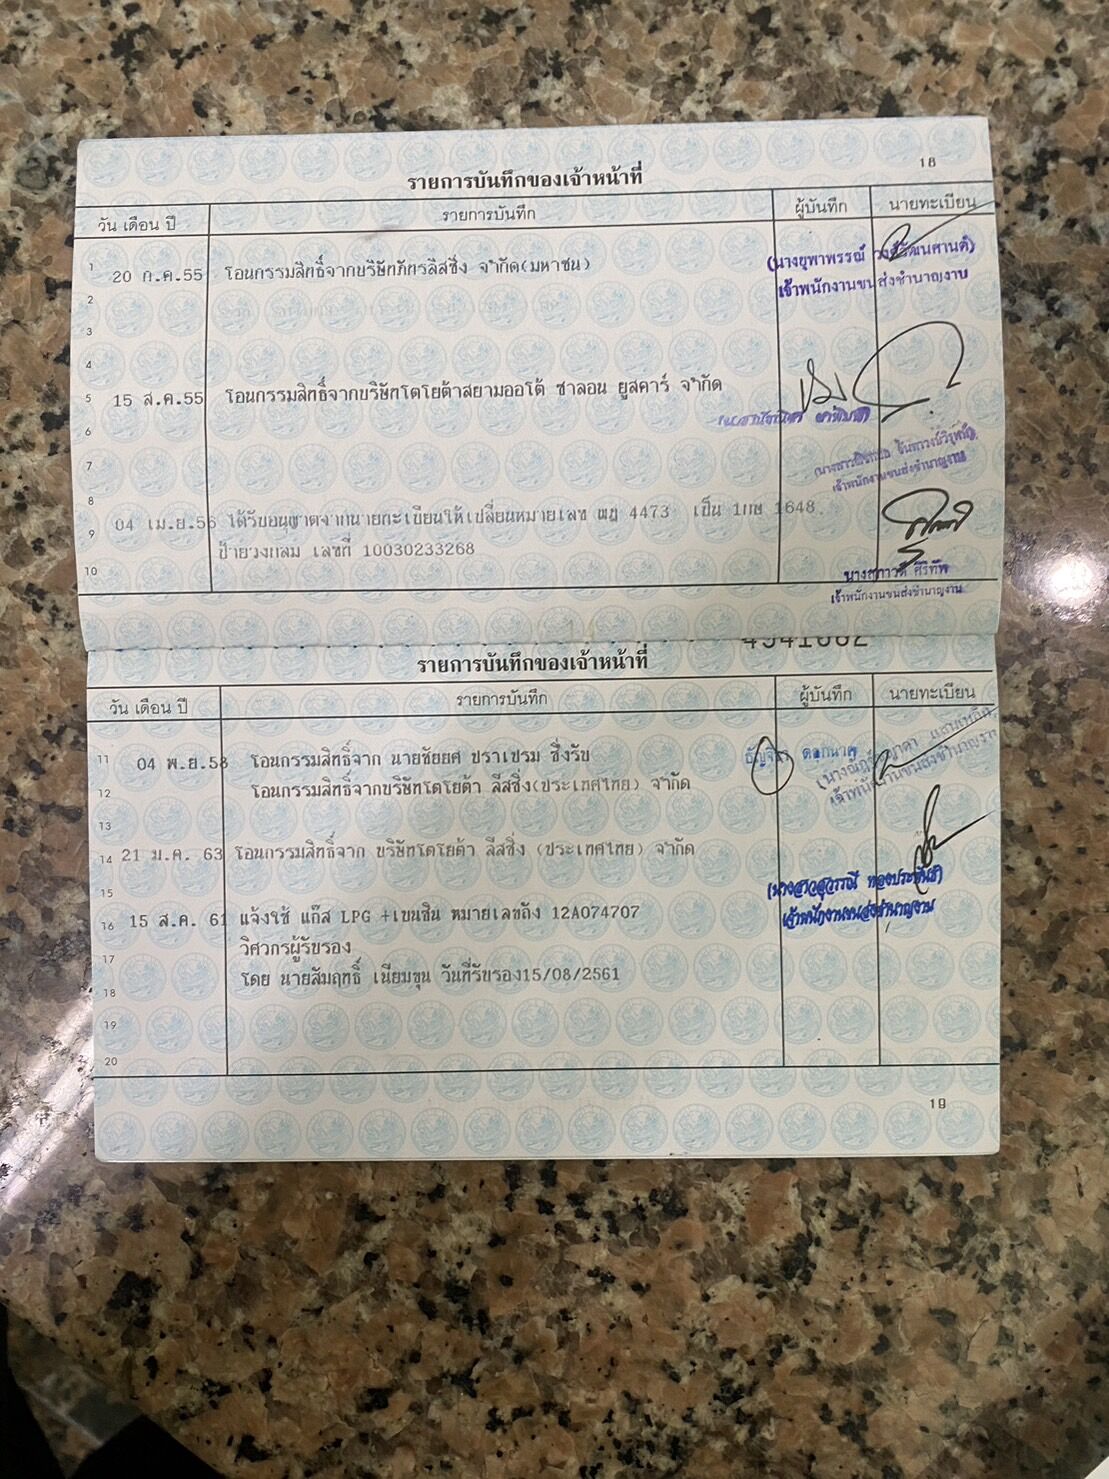 18
รายการบันทึกของเจ้าหน้าที่
วัน เดือน ปี รายการบันทึก ผู้บันทึก นายทะเบียน
1 20 ก.ค.55 โอนกรรมสิทธิ์จากบริษัทภัทรลิสซิ่ง จำกัด(มหาชน) (นางยุพาพรรณ์ วงศ์วัฒนศานต์)
เจ้าพนักงานขนส่งชำนาญงาน
2
3
4
5 15 ส.ค.55 โอนกรรมสิทธิ์จากบริษัทโตโยต้าสยามออโต้ ซาลอน ยูสคาร์ จำกัด
6
7 เจ้าพนักงานขนส่งชำนาญงาน
8
9 04 เม.ย.56 ได้รับอนุญาตจากนายทะเบียนให้เปลี่ยนหมายเลข 4473 เป็น 1กษ 1648
ป้ายวงกลม เลขที่ 10030233268
10 นางสุภาวดี ศิริทัพ
เจ้าพนักงานขนส่งชำนาญงาน
4541662
รายการบันทึกของเจ้าหน้าที่
วัน เดือน ปี รายการบันทึก ผู้บันทึก นายทะเบียน
11 04 พ.ย.58 โอนกรรมสิทธิ์จาก นายชัยยศ ปราเปรม ซึ่งรับ
12 โอนกรรมสิทธิ์จากบริษัทโตโยต้า ลีสซิ่ง(ประเทศไทย) จำกัด เจ้าพนักงานขนส่งชำนาญงาน
13
14 21 ม.ค. 63 โอนกรรมสิทธิ์จาก บริษัทโตโยต้า ลีสซิ่ง (ประเทศไทย) จำกัด
15 (นางสาวสุวรรณี ทองประพันธ์)
16 15 ส.ค. 61 แจ้งใช้ แก๊ส LPG +เบนซิน หมายเลขถัง 12A074707 เจ้าพนักงานขนส่งชำนาญงาน
17 วิศวกรผู้รับรอง
18 โดย นายสัมฤทธิ์ เนียมขุน วันที่รับรอง15/08/2561
19
20
19